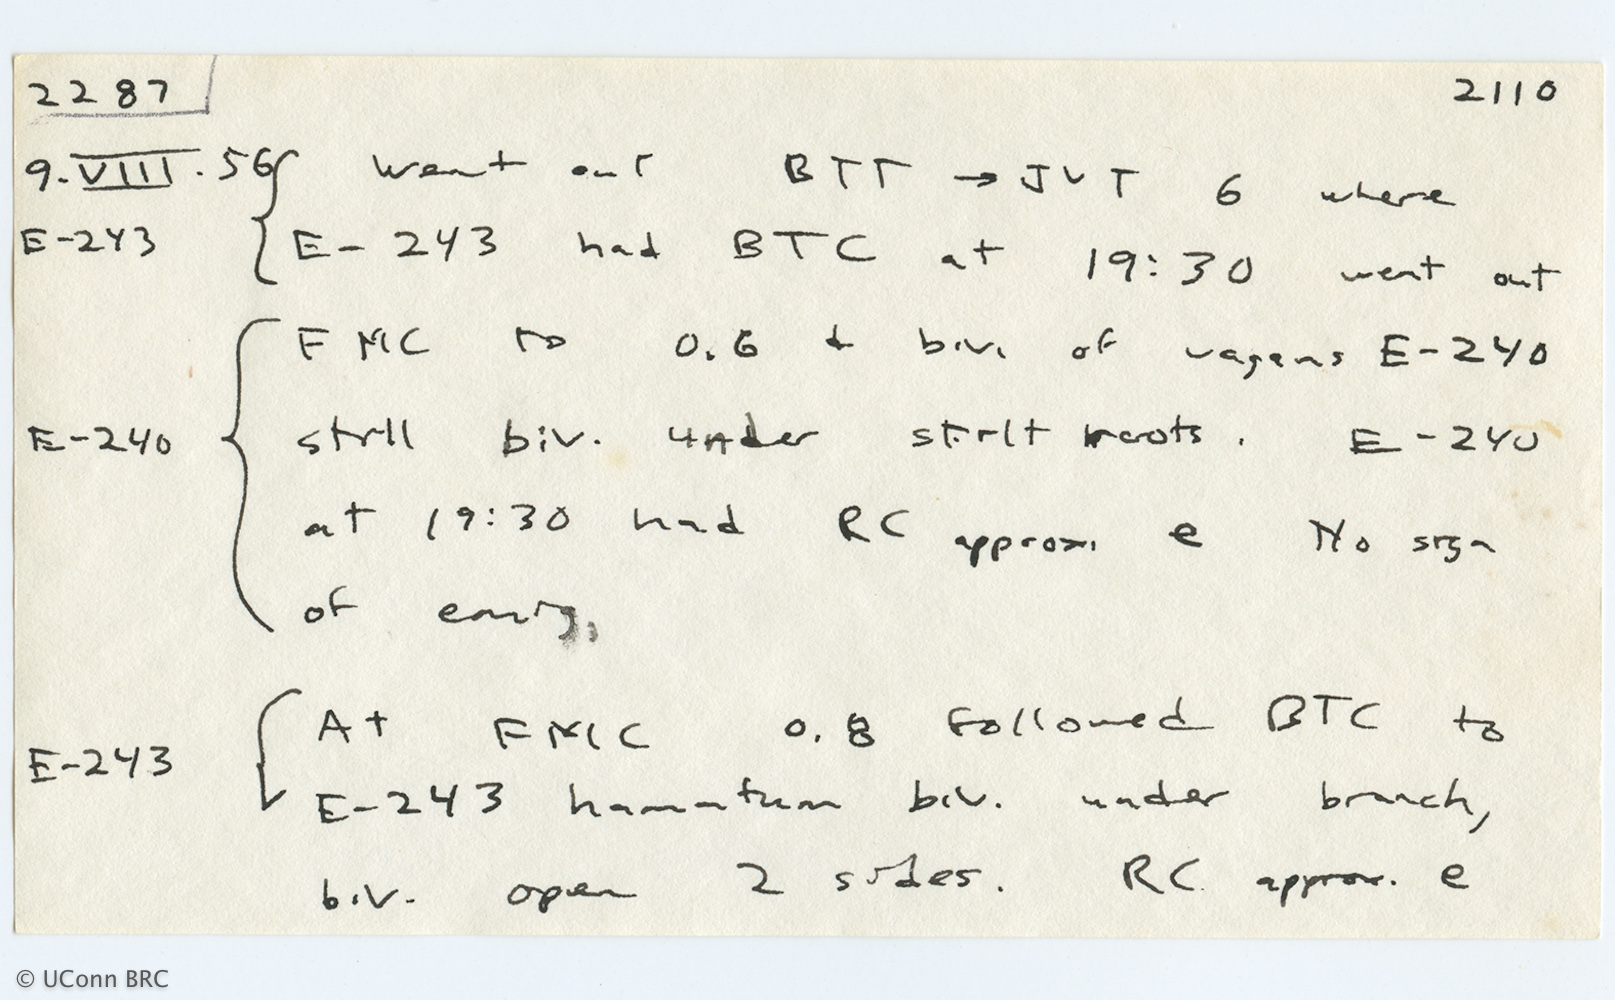 2287 2110
9.VIII.56 Went out BTT → JVT 6 where
E-243 E-243 had BTC at 19:30 went out
FMC to 0.6 & biv. of vagans E-240
E-240 still biv. under stilt roots. E-240
at 19:30 had RC approx. e No sign
of emig.
At FMC 0.8 followed BTC to
E-243 E-243 hamatum biv. under branch,
biv. open 2 sides. RC approx. e
© UConn BRC